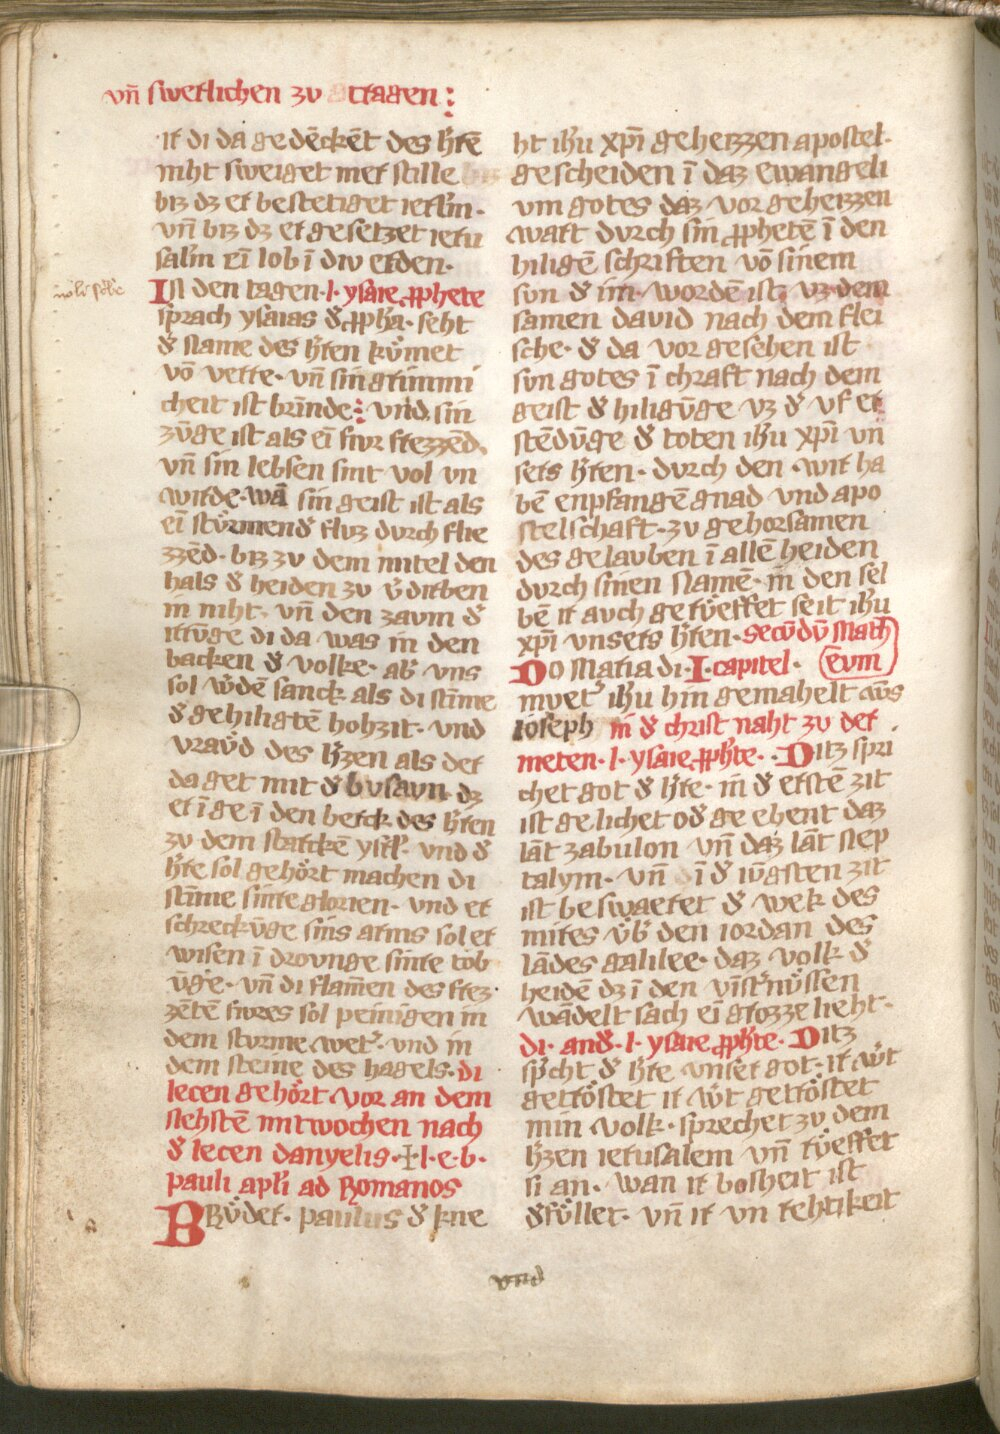 vn̄ swerlichen zv ottagen :
ir di da gedēckēt des h̾rē
niht sweiget mer stille
biz dz er bestetiget ierl̄m·
vn̄ biz dz er gesetzet ieru
salīm eī lob ī div erden·
In den tagen· l· ysaie ꝓphete
sprach ysaias d̾ ꝓph̄a· seht
d̾ name des h̾ren kv̊met
vō verre· vn̄ sin grimmi
cheit ist brinnde : vnd sin
zv̄ge ist als eī fivr frezzēd·
vn̄ sin lebsen sint vol vn
wirde· wā sin geist ist als
eī stv̊rmend̾ fluz durch flie
zzēd· biz zv dem mitel den
hals d̾ heiden zv v̾dirben
in niht· vn̄ den zaum d̾
irrv̄ge di da was in den
backen d̾ volke· ab̾ vns
sol w̾dē sanck als di stīme
d̾ gehiligtē hohzit· vnd
vravd̾ des h̾zen als der
da get mit d̾ busavn dz
er ī ge ī den berck des h̾ren
zv dem starckē ysrl̾· vnd d̾
h̾re sol gehört machen di
stīme sinre glorien· vnd er
schreckv̄ge sins arms sol er
wisen ī drovnge sinre tob
v̄ge· vn̄ di flam̄en des frez
zētē fivres sol peinigen in
dem sturme wet̾· vnd in
dem steine des hagels· di
lecen gehört vor an dem
nehstē mitwochen nach
d̾ lecen danyelis· ☩ l· e· b·
pauli apl̄i ad Romanos
Brv̊der· paulus d̾ kne
ht ih̄u xp̄i geheizzen apostel·
gescheiden ī daz ewangeli
vm gotes daz vor geheizzen
wart durch sin ꝓphetē ī den
hiligē schriften vō sinem
svn d̾ im· wordē ist vz dem
samen david nach dem flei
sche· d̾ da vor gesehen ist
svn gotes ī chraft nach dem
geist d̾ hiligv̄ge vz d̾ vf er
stēdv̄ge d̾ toten ih̄u xp̄i vn
sers h̾ren· durch den wir ha
bē enpfangē gnad vnd apo
stelschaft· zv gehorsamen
des gelauben ī allē heiden
durch sinen namē· in den sel
bē ir avch gerv̊effet seit ih̄u
xp̄i vnsers h̾ren· Secūdū Math
eum
Do Maria di· I· capitel·
mvet̾ ih̄u hin gemahelt w̾s
ioseph in d̾ christ naht zv der
meten· l· ysaie ꝓph̾te· Ditz spri
chet got d̾ h̾re· in d̾ erstē zit
ist gelichet od̾ ge ebent daz
lāt zabulon vn̄ daz lāt nep
talym· vn̄ ī d̾ ivgsten zit
ist beswaeret d̾ wek des
mires v̊b̾ den iordan des
lādes galilee· daz volk d̾
heidē dz ī den vīst̾nv̊ssen
wādelt sach eī grozze lieht·
di· and̾· l· ysaie ꝓph̾te· Ditz
sp̾cht d̾ h̾re vnser got· ir w̾t
getröstet ir w̾t getröstet
min volk· sprechet zv dem
h̾zen ierusalem vn̄ rv̊effet
si an· wan ir bosheit ist
d̾fv̊llet· vn̄ ir vn rehtikeit
vnd